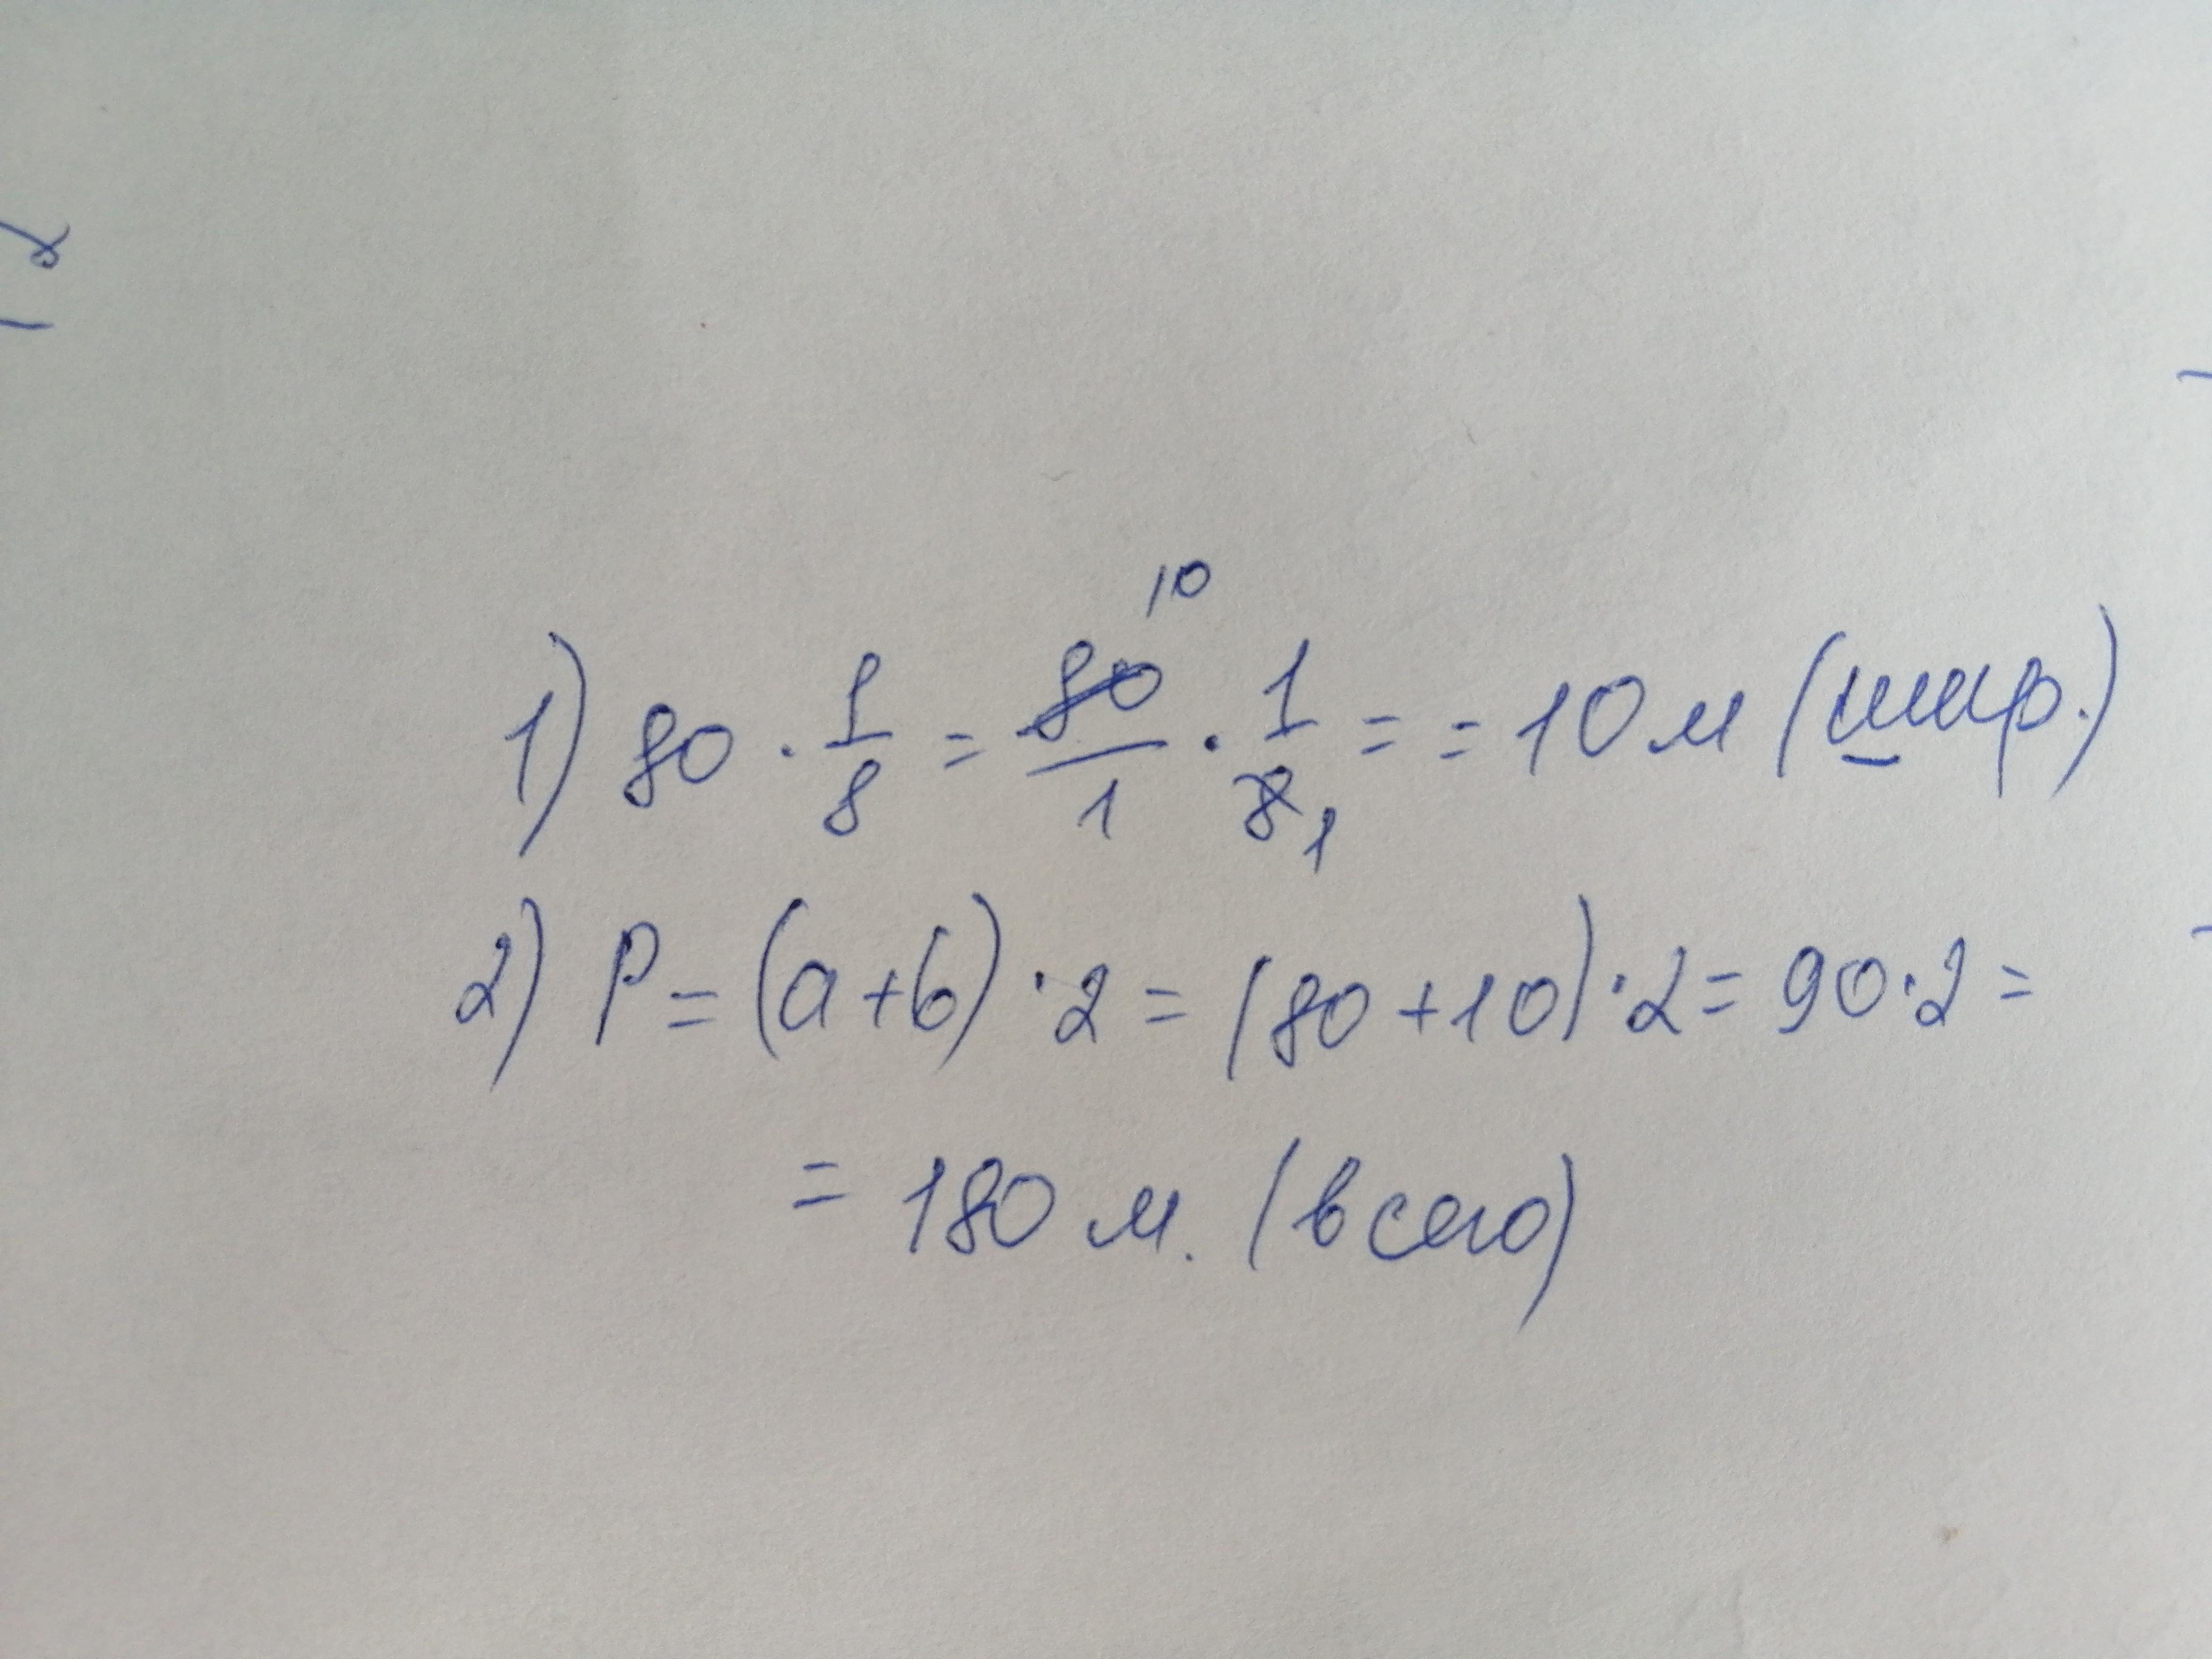 1) 80 · 1/8 = 80/1 · 1/8 = = 10 м (шир.)
10
1
2) P = (a + b) · 2 = (80 + 10) · 2 = 90 · 2 =
= 180 м. (всего)